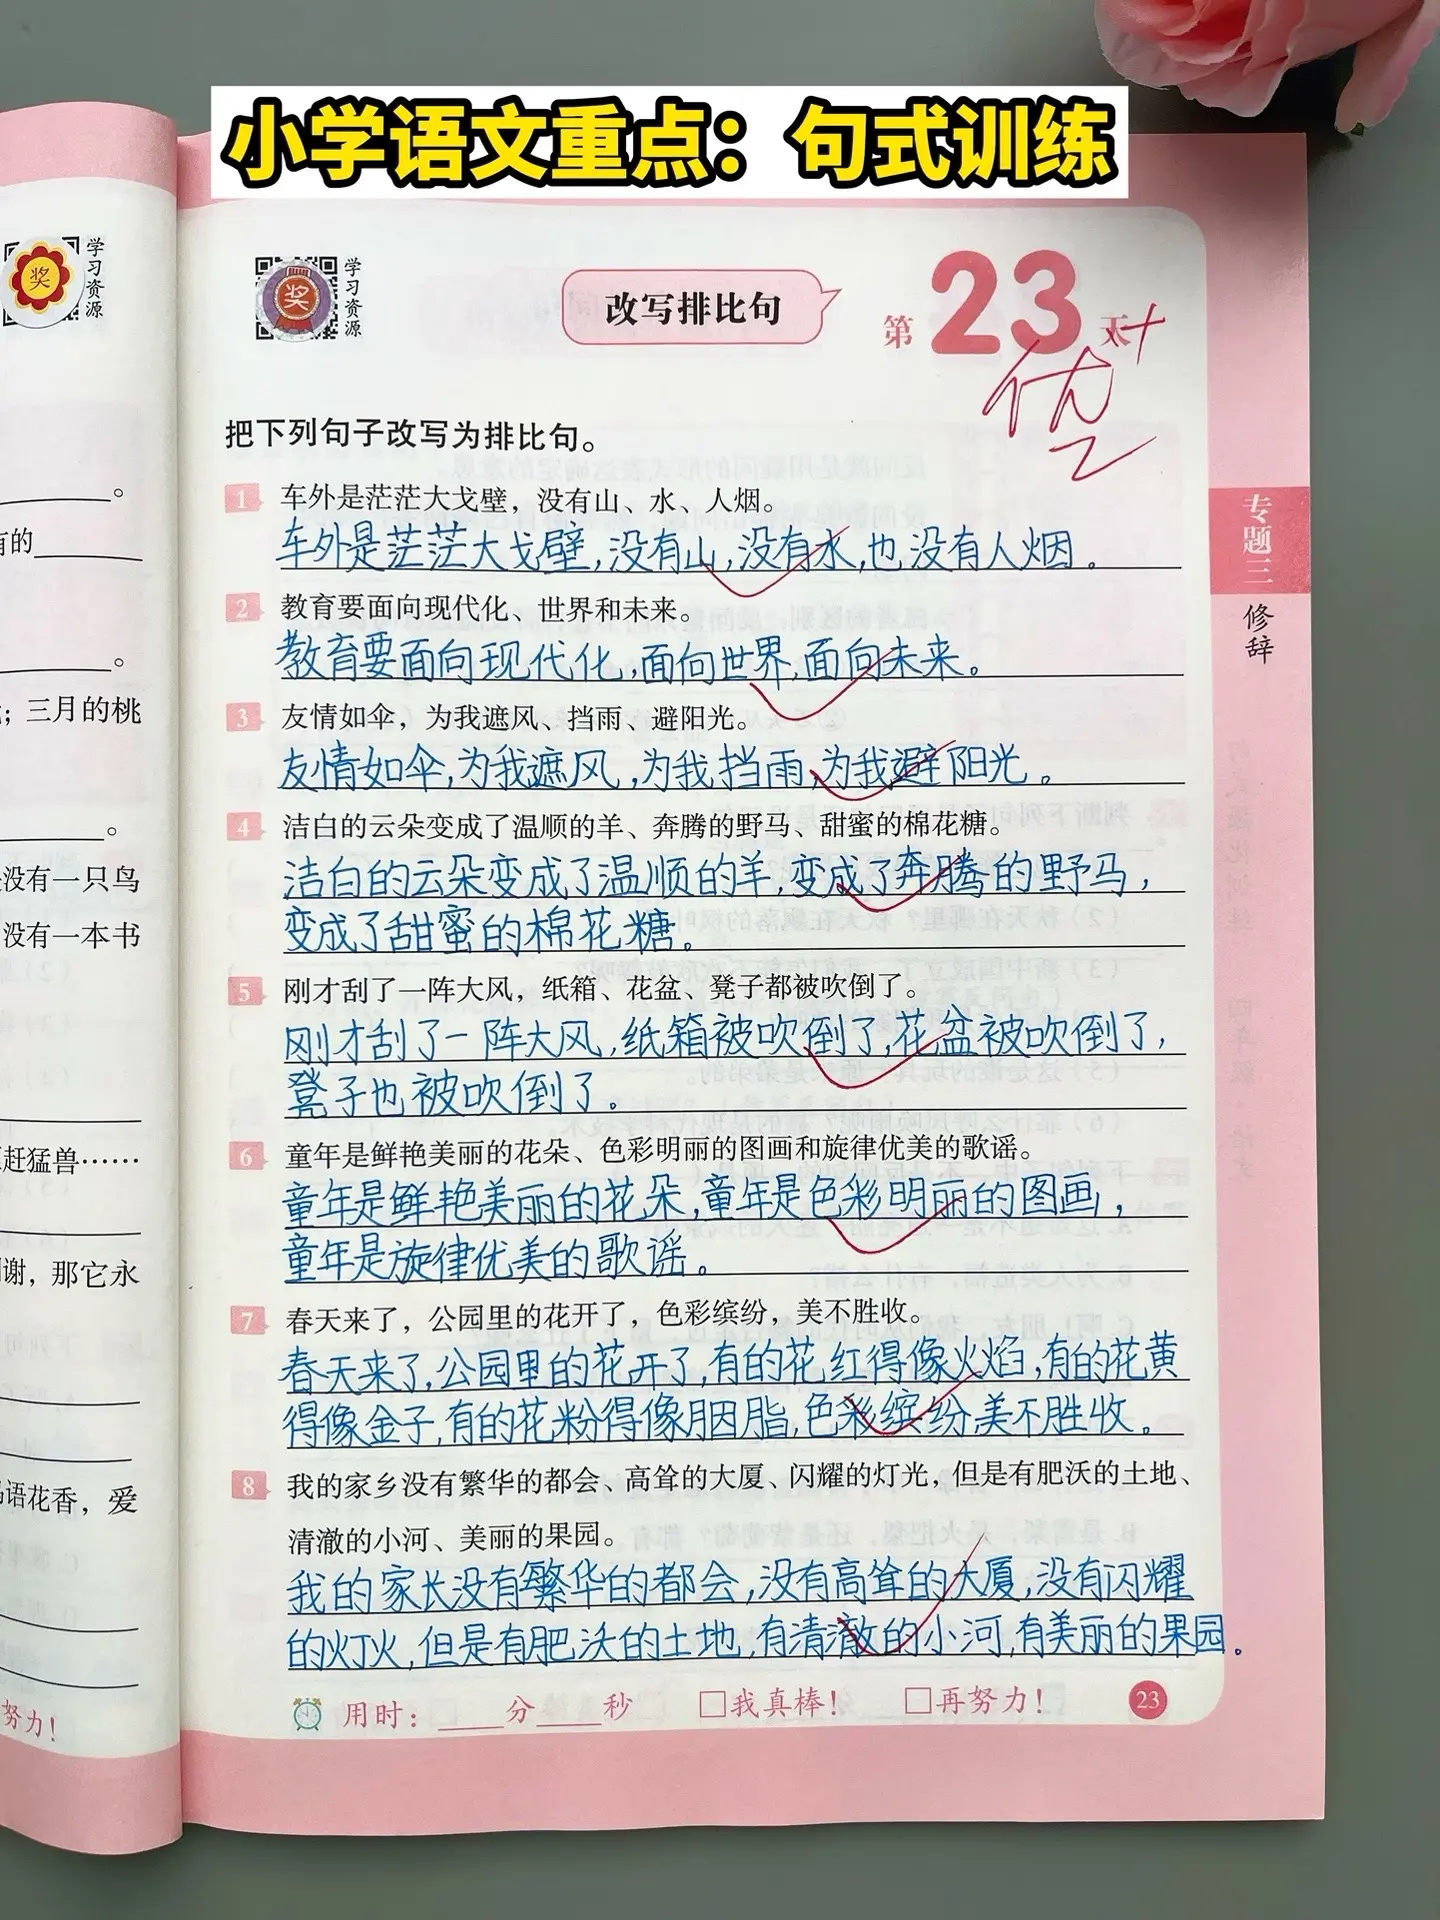 小学语文重点：句式训练
奖
学习资源
奖
学习资源
改写排比句
第23天
优+
把下列句子改写为排比句。
1 车外是茫茫大戈壁，没有山、水、人烟。
车外是茫茫大戈壁，没有山，没有水，也没有人烟。
2 教育要面向现代化、世界和未来。
教育要面向现代化，面向世界，面向未来。
3 友情如伞，为我遮风、挡雨、避阳光。
友情如伞，为我遮风，为我挡雨，为我避阳光。
4 洁白的云朵变成了温顺的羊、奔腾的野马、甜蜜的棉花糖。
洁白的云朵变成了温顺的羊，变成了奔腾的野马，
变成了甜蜜的棉花糖。
5 刚才刮了一阵大风，纸箱、花盆、凳子都被吹倒了。
刚才刮了一阵大风，纸箱被吹倒了，花盆被吹倒了，
凳子也被吹倒了。
6 童年是鲜艳美丽的花朵、色彩明丽的图画和旋律优美的歌谣。
童年是鲜艳美丽的花朵，童年是色彩明丽的图画，
童年是旋律优美的歌谣。
7 春天来了，公园里的花开了，色彩缤纷，美不胜收。
春天来了，公园里的花开了，有的花红得像火焰，有的花黄
得像金子，有的花粉得像胭脂，色彩缤纷，美不胜收。
8 我的家乡没有繁华的都会、高耸的大厦、闪耀的灯光，但是有肥沃的土地、
清澈的小河、美丽的果园。
我的家长没有繁华的都会，没有高耸的大厦，没有闪耀
的灯火，但是有肥沃的土地，有清澈的小河，有美丽的果园。
用时：____分____秒 □我真棒！ □再努力！
23
专题三
修辞
有的
；三月的桃
没有一只鸟
没有一本书
赶猛兽……
谢，那它永
语花香，爱
努力！